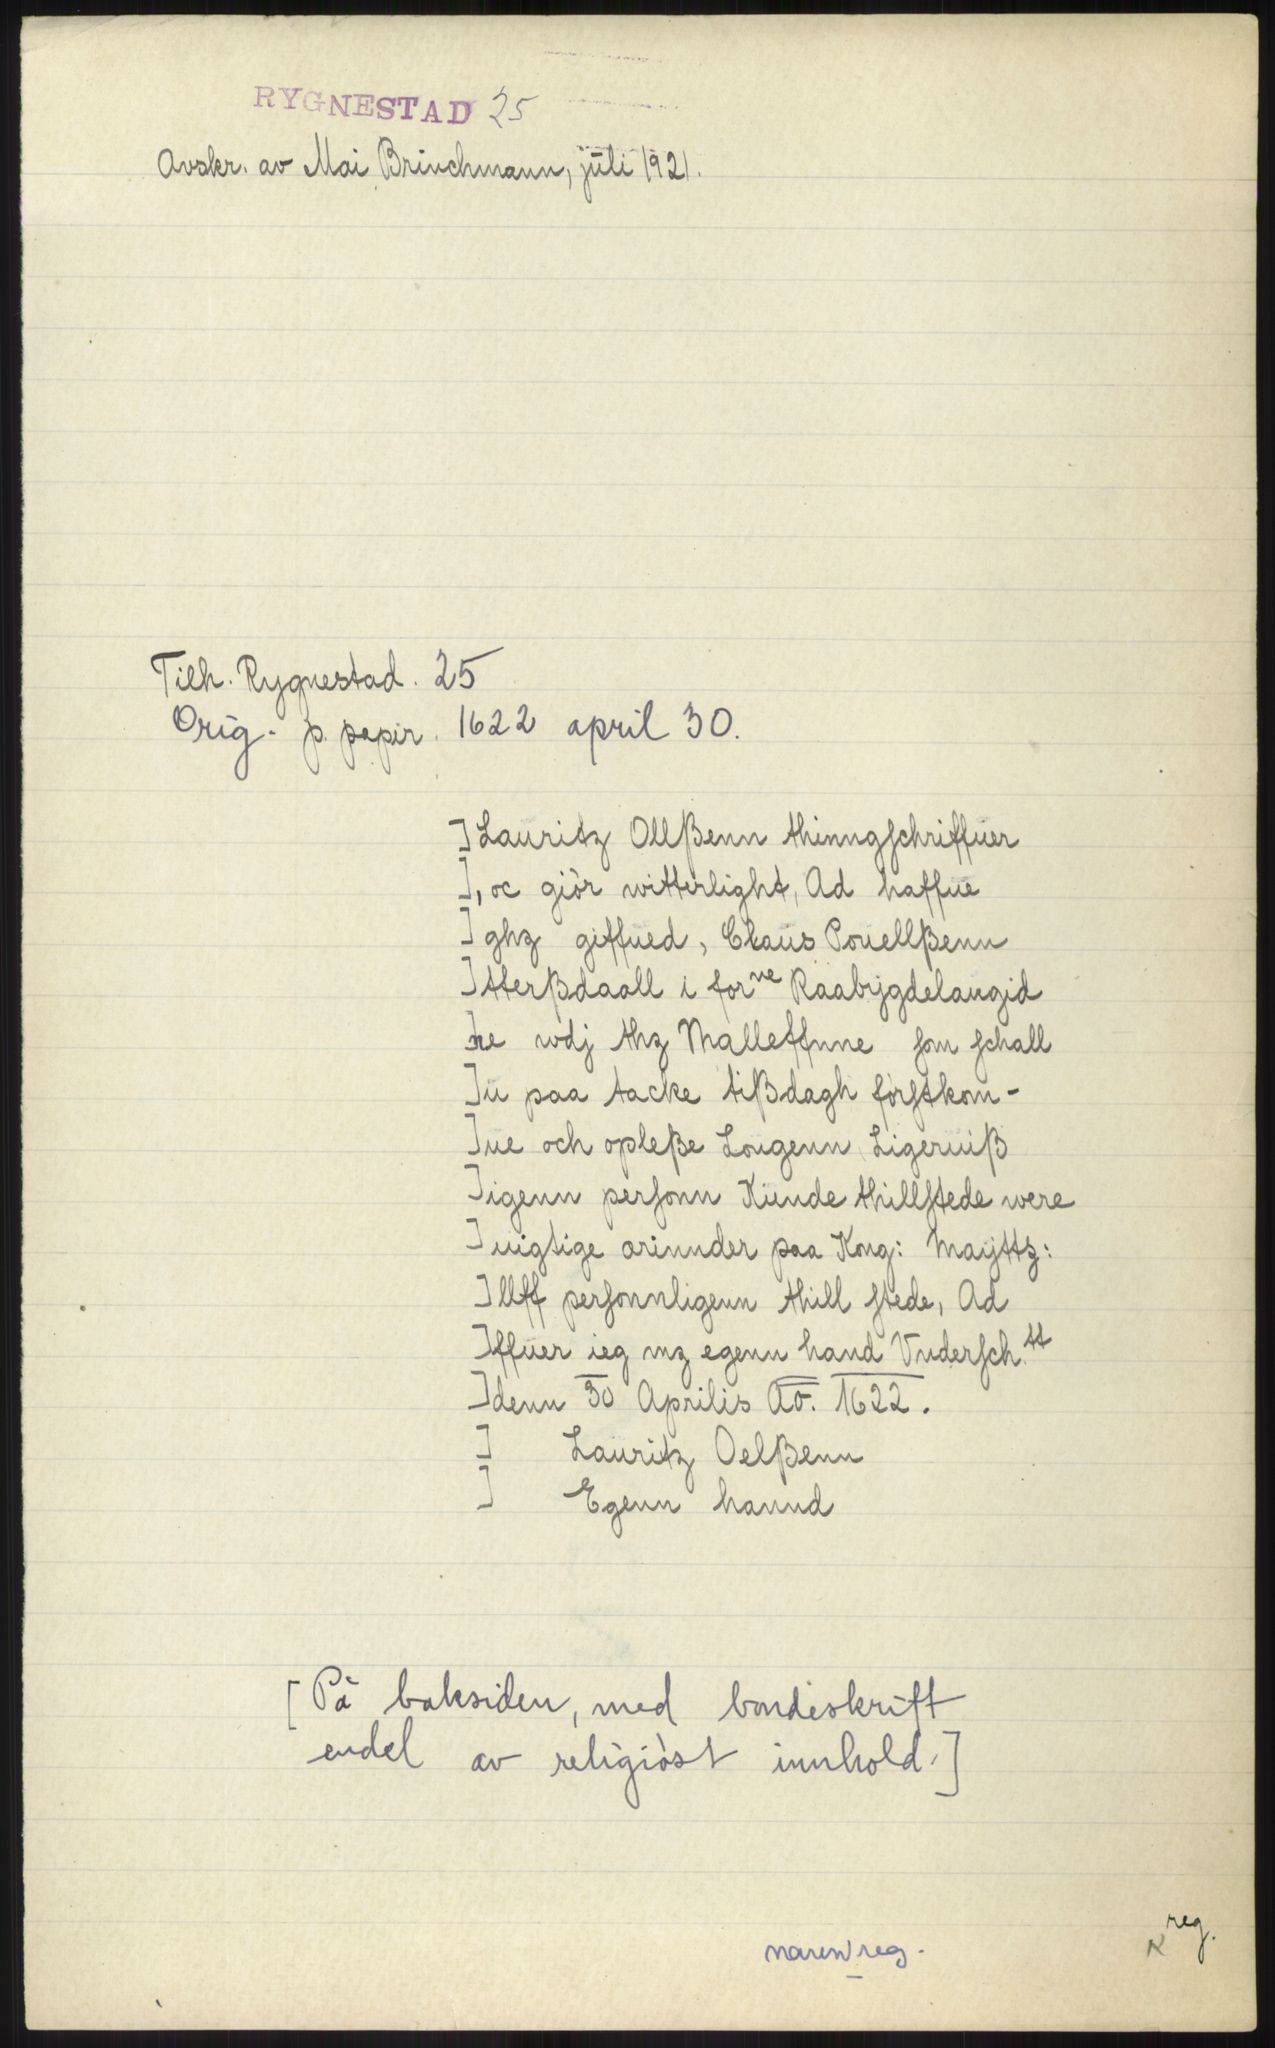 RYGNESTAD 25
Avskr. av Mai Brinchmann, juli 1921.
Tilh. Rygnestad. 25
Orig. p. papir. 1622 april 30.
] Lauritz Ollßenn thinngschriffuer
], oc giör witterlight, Ad haffue
] ghz giffued, Claus Pouellßenn
] tterßdaall i forne Raabygdelaugid
] re wdj thz Malleffnne som schall
] u paa tacke tißdagh förstkom-
] ue och opleße Lougenn Ligeruiß
] igenn personn Kunde thillstede were
] uigtige ærinnder paa Kong: Mayttz:
] llff personnligenn thill stede, Ad
] ffuer ieg mz egenn hand Vndersch.tt
] denn 30 Aprilis Ao. 1622.
] Lauritz Oelßenn
] Egenn hannd
[På baksiden, med bondeskrift
endel av religiøst innhold.]
reg.
reg.